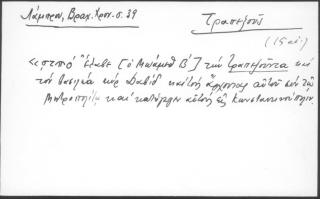 Λάμπρου, Βραχ. Χρον. σ. 39
Τραπεζοῦς
(15 αἰ.)
ἔλαβε [ὁ Μωάμεθ Β΄] τὴν Τραπεζοῦντα καὶ
τὸν βασιλέα κὺρ Δαβὶδ καὶ τοὺς ἄρχοντας αὐτοῦ σὺν τῷ
Μητροπολίτῃ καὶ κατήγαγεν αὐτοὺς εἰς Κωνσταντινούπολιν.